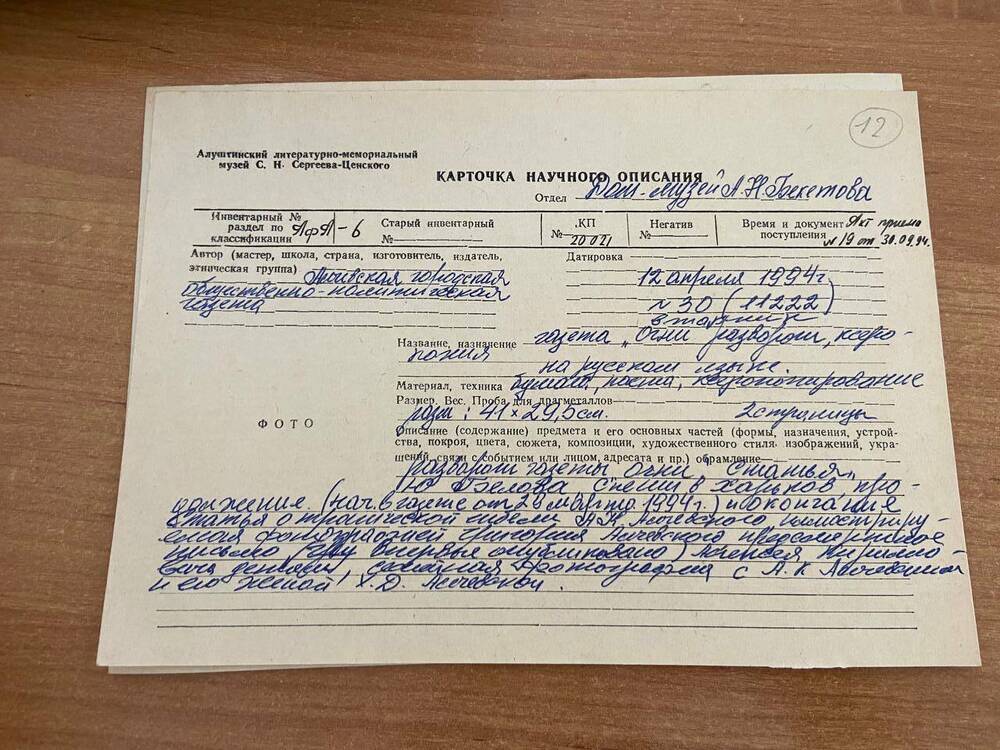 12
Алуштинский литературно-мемориальный
музей С. Н. Сергеева-Ценского
КАРТОЧКА НАУЧНОГО ОПИСАНИЯ
Отдел Дом-музей А.Н.Бекетова
Инвентарный № раздел по классификации АфА-6
Старый инвентарный №
КП № 20021
Негатив №
Время и документ поступления Акт приема №19 от 30.09.94.
Автор (мастер, школа, страна, изготовитель, издатель,
этническая группа) Алчевская городская
общественно-политическая
газета
Датировка
12 апреля 1994г
№ 30 (11222)
вторник
Название, назначение газета „Огни" разворот, ксеро-
копия
на русском языке.
Материал, техника бумага, паста, ксерокопирование
Размер. Вес. Проба для драгметаллов
разм: 41×29,5см. 2 страницы
ФОТО
Описание (содержание) предмета и его основных частей (формы, назначения, устрой-
ства, покроя, цвета, сюжета, композиции, художественного стиля изображений, укра-
шений, связи с событием или лицом, адресата и пр.) обрамление
разворот газеты Огни. Статья
Ю Белова Спеши в Харьков про-
должение. (нач. в газете от 29 марта 1994г.) и окончание
Статья о трагической гибели А.К Алчевского, иллюстриру-
емая фотографией Григория Алчевского предсмертное
письмо впервые опубликовано) Алексея Кирилло-
вича семейная фотография с А.К Алчевским
и его женой Х.Д. Алчевской.